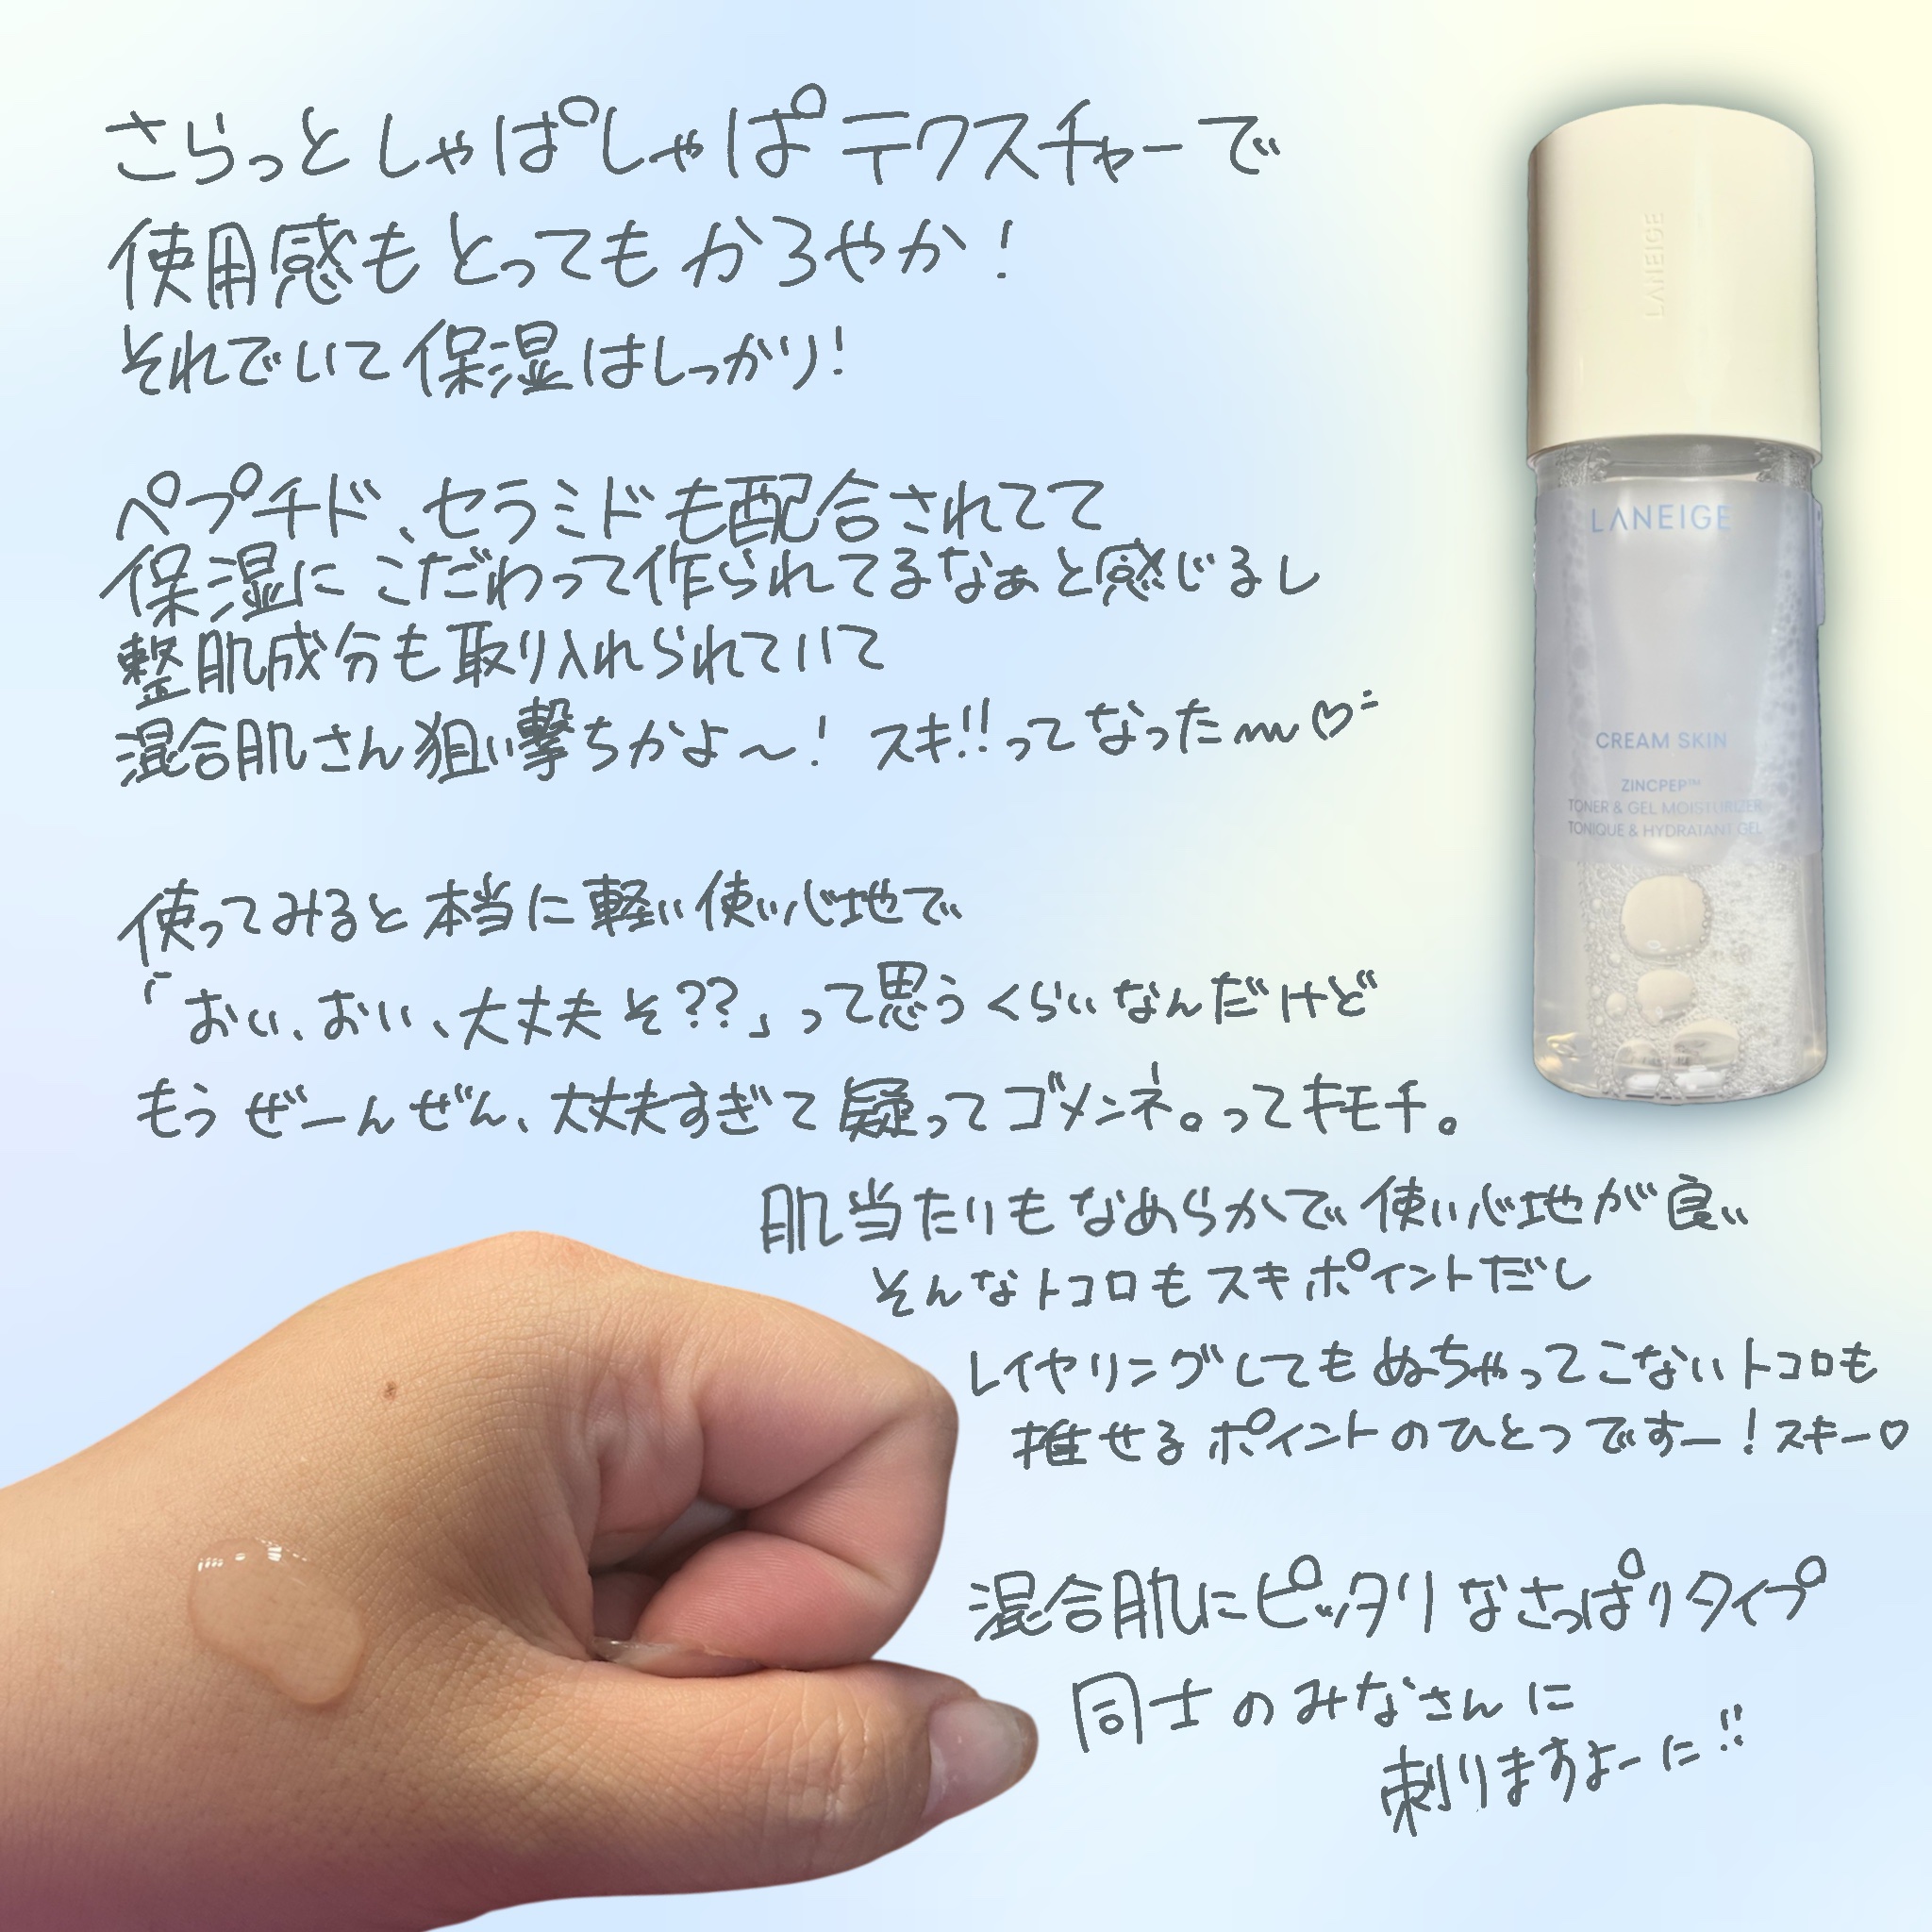 さらっとしゃぱしゃぱテクスチャーで
使用感もとってもかろやか！
それでいて保湿はしっかり！
ペプチド、セラミドも配合されてて
保湿にこだわって作られてるなぁと感じるし
整肌成分も取り入れられていて
混合肌さん狙い撃ちかよ〜！スキ!!ってなったm♡
使ってみると本当に軽い使い心地で
「おい、おい、大丈夫そ??」って思うくらいなんだけど
もうぜーんぜん、大丈夫すぎて疑ってゴメンネ。ってキモチ。
肌当たりもなめらかで使い心地が良い
そんなトコロもスキポイントだし
レイヤリングしてもぬちゃってこないトコロも
推せるポイントのひとつですー！スキー♡
混合肌にピッタリなさっぱりタイプ
同士のみなさんに
刺りますよーに!!
LANEIGE
LANEIGE
CREAM SKIN
ZINCPEP™
TONER & GEL MOISTURIZER
TONIQUE & HYDRATANT GEL